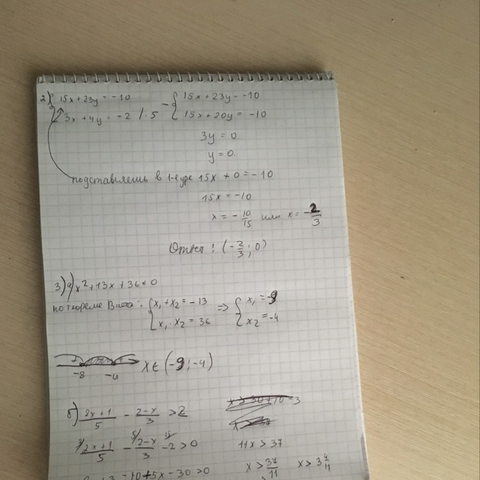 2) { 15x+23y=-10
3x+4y=-2 | ·5
- { 15x+23y=-10
15x+20y=-10
3y=0
y=0
подставляешь в 1-е ур 15x+0=-10
15x=-10
x=-10/15 или x=-2/3
Ответ: (-2/3; 0)
3) a) x²+13x+36<0
по теореме Виета: { x₁+x₂=-13
x₁·x₂=36
=> { x₁=-9
x₂=-4
-9 -4 x∈(-9;-4)
б) 2x+1/5 - 2-x/3 >2
2x+1/5 - 2-x/3 -2>0
-10+5x-30>0
11x>37
x>37/11 x>3 4/11